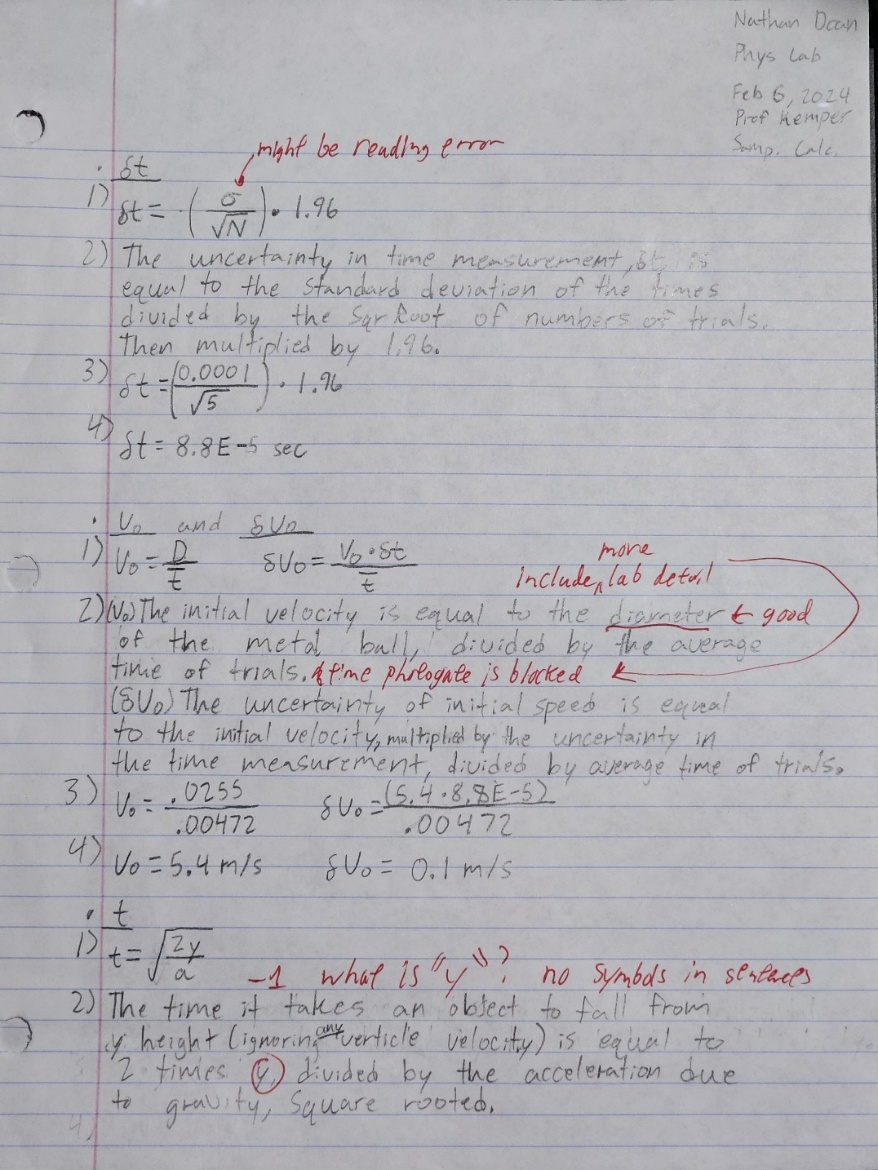 Nathan Dean
Phys Lab
Feb 6, 2024
Prof Kemper
Samp. Calc.
might be reading error
• δt
1) δt = (σ/√N) • 1.96
2) The uncertainty in time measurement, δt, is
equal to the standard deviation of the times
divided by the Sqr Root of numbers of trials.
Then multiplied by 1.96.
3) δt = (0.0001/√5) • 1.96
4) δt = 8.8E-5 sec
• V₀ and δV₀
1) V₀ = D/t̅ δV₀ = V₀•δt/t̅
more
include ^ lab detail
2) (V₀) The initial velocity is equal to the diameter ← good
of the metal ball, divided by the average
time of trials. ← time photogate is blocked ←
(δV₀) The uncertainty of initial speed is equal
to the initial velocity, multiplied by the uncertainty in
the time measurement, divided by average time of trials.
3) V₀ = .0255/.00472 δV₀ = (5.4•8.8E-5)/.00472
4) V₀ = 5.4 m/s δV₀ = 0.1 m/s
• t
1) t = √(2y/a)
-1 what is "y"? no symbols in sentences
2) The time it takes an object to fall from
y height (ignoring any verticle velocity) is equal to
2 times y, divided by the acceleration due
to gravity, Square rooted.
4)